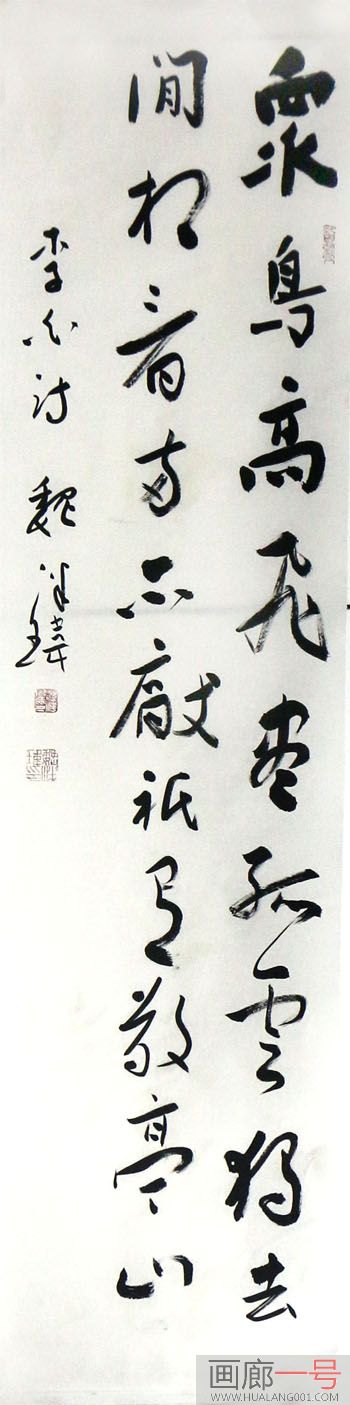 衆鳥高飛盡孤雲獨去
閒相看兩不厭祇有敬亭山
李白詩 魏
画廊一号
WWW.HUALANG001.COM